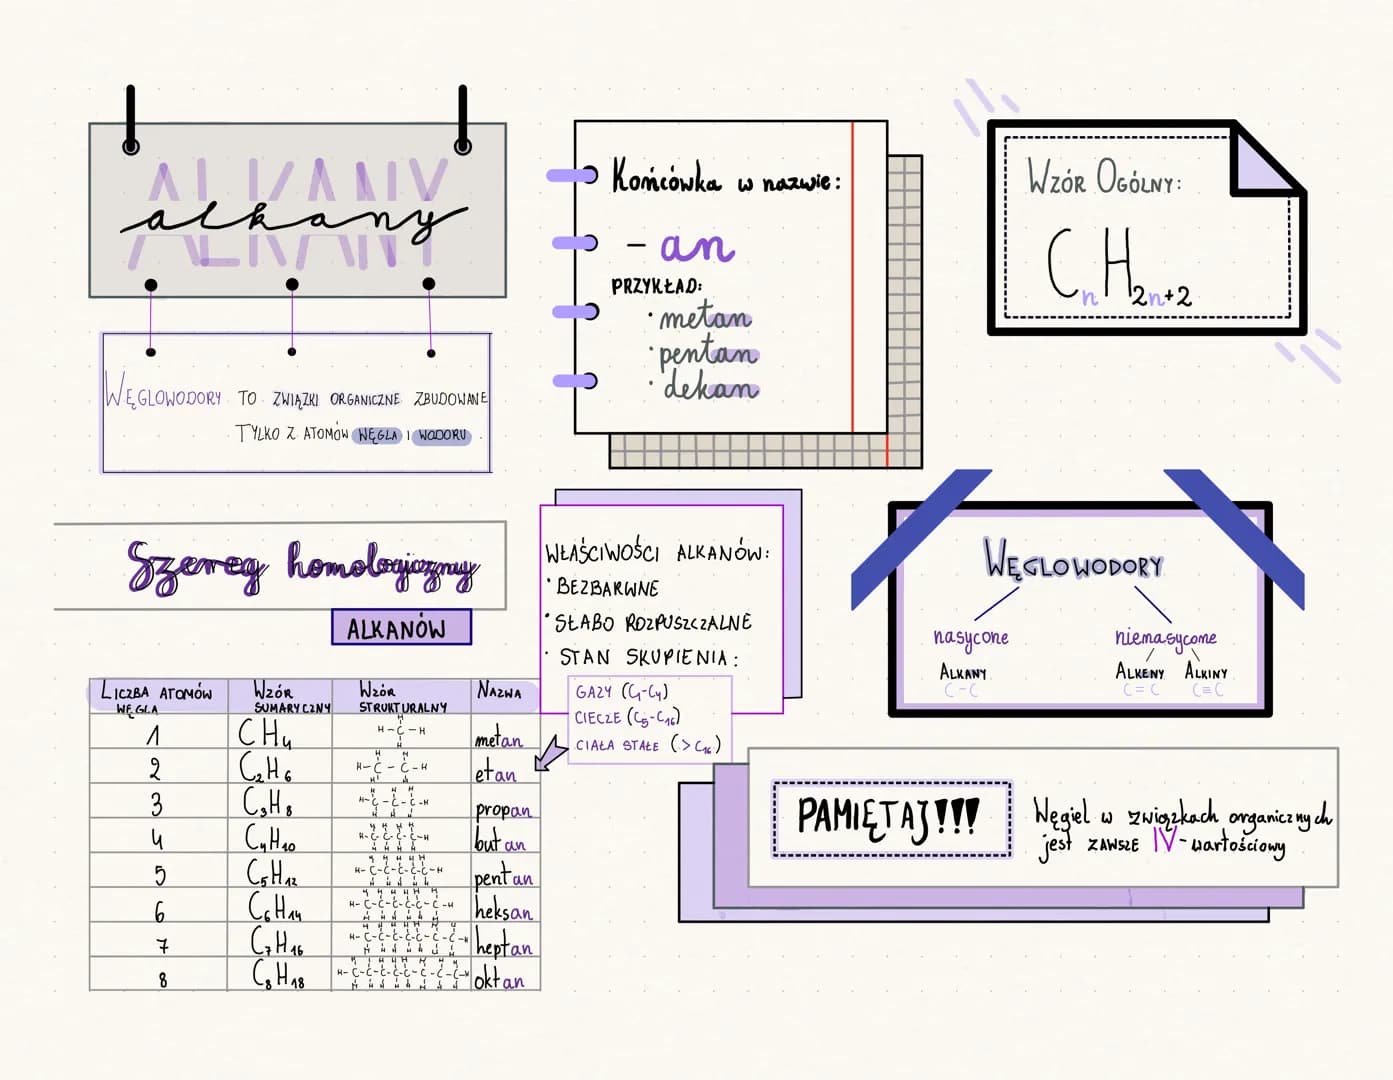 ALKANY
alkany
WĘGLOWODORY TO ZWIĄZKI ORGANICZNE ZBUDOWANE
TYLKO Z ATOMÓW WĘGLA I WODORU.
Końcówka w nazwie:
- an
PRZYKŁAD:
· metan
· pentan
· dekan
WZÓR OGÓLNY:
CnH2n+2
Szereg homologiczny
ALKANÓW
LICZBA ATOMÓW WĘGLA WZÓR SUMARYCZNY WZÓR STRUKTURALNY NAZWA
1 CH4 metan
2 C2H6 etan
3 C3H8 propan
4 C4H10 butan
5 C5H12 pentan
6 C6H14 heksan
7 C7H16 heptan
8 C8H18 oktan
WŁAŚCIWOŚCI ALKANÓW:
· BEZBARWNE
· SŁABO ROZPUSZCZALNE
· STAN SKUPIENIA:
GAZY (C1-C4)
CIECZE (C5-C16)
CIAŁA STAŁE (>C16)
WĘGLOWODORY
nasycone niemasycone
ALKANY ALKENY ALKINY
C-C C=C C≡C
PAMIĘTAJ!!!
Węgiel w związkach organicznych
jest ZAWSZE IV-wartościowy